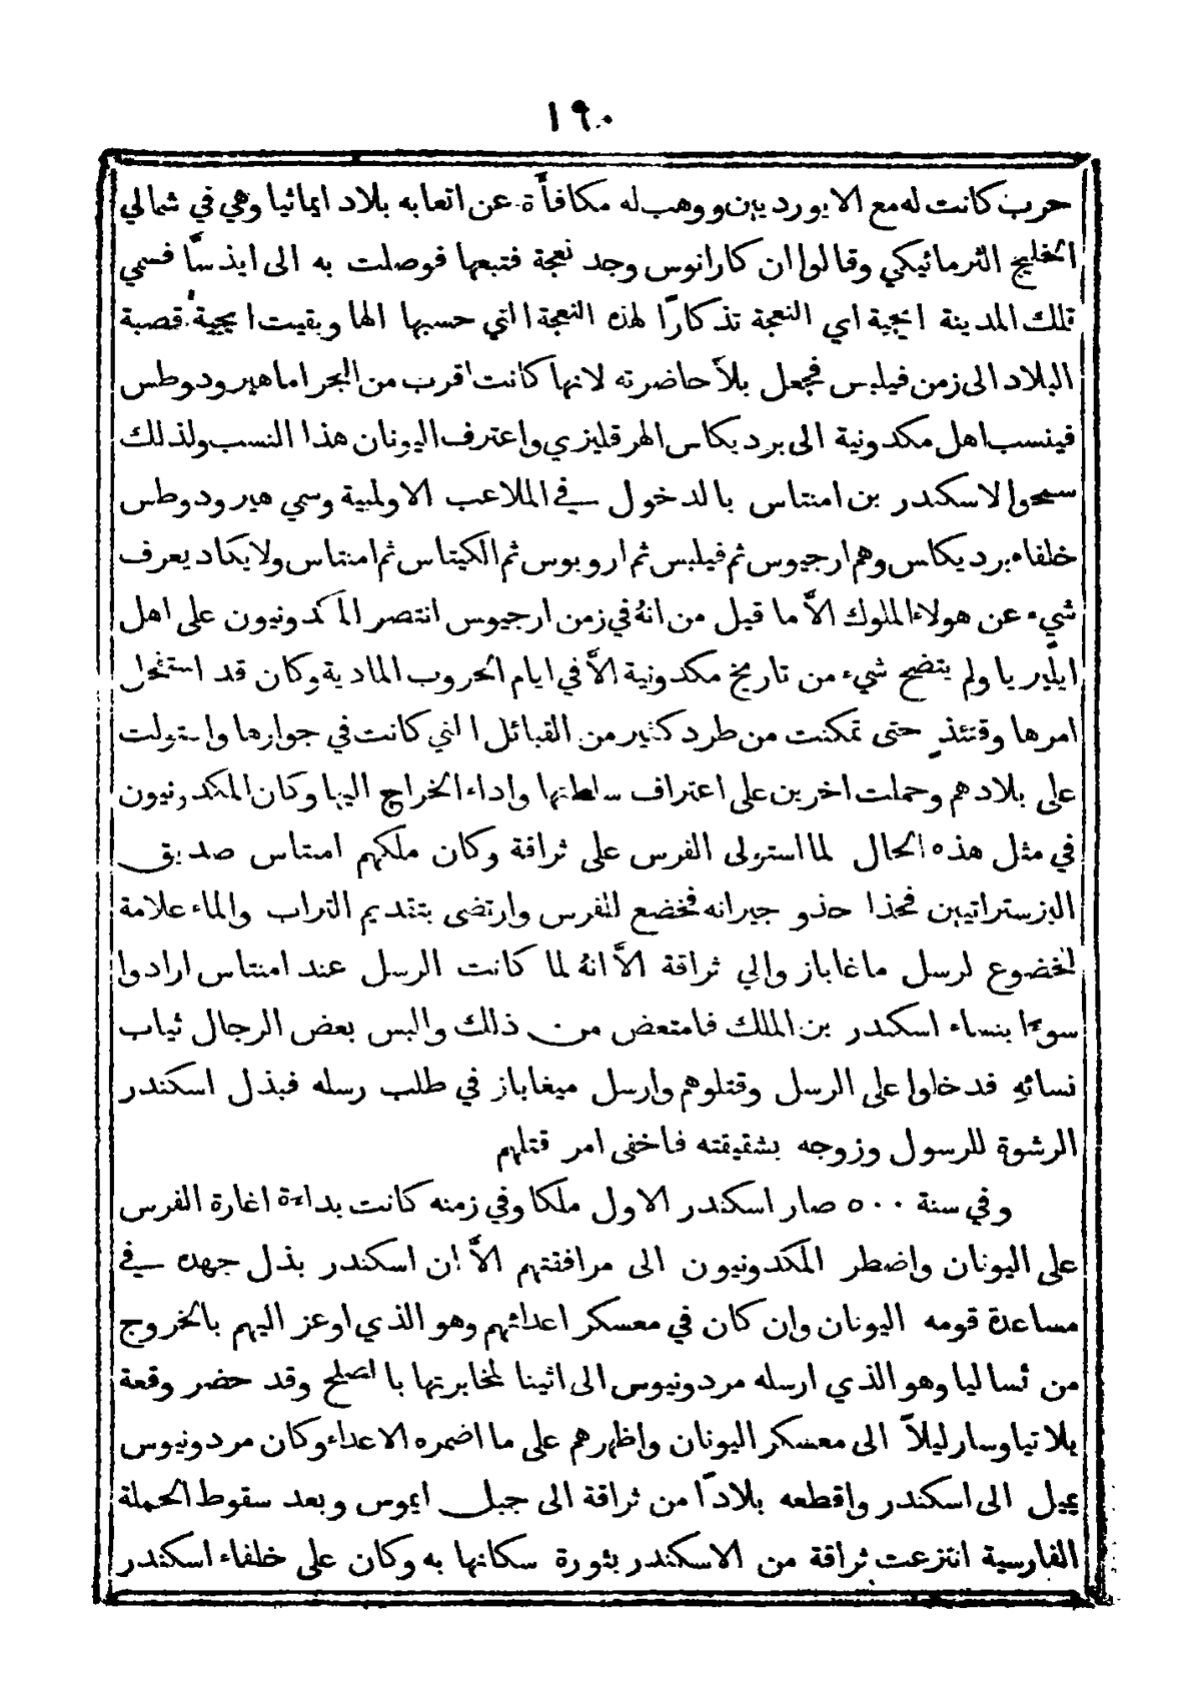 ١٩٠
حرب كانت له مع الايورديين ووهب له مكافأة عن اتعابه بلاد ايماثيا وهي في شمالي
الخليج الثرمائيكي وقالوا ان كارانوس وجد نعجة فتبعها فوصلت به الى ايذسّا فسمي
تلك المدينة ايجية اي النعجة تذكارًا لهذه النعجة التي حسبها الها وبقيت ايجية قصبة
البلاد الى زمن فيلبس فجعل بلاّ حاضرته لانها كانت اقرب من البحر اما هيرودوطس
فينسب اهل مكدونية الى برديكاس الهرقليزي واعترف اليونان هذا النسب ولذلك
سمحوا لاسكندر بن امنتاس بالدخول في الملاعب الاولمبية وسمي هيرودوطس
خلفاء برديكاس وهم ارجيوس ثم فيلبس ثم اروبوس ثم الكيتاس ثم امنتاس ولا يكاد يعرف
شيء عن هولاء الملوك الاَّ ما قيل من انهُ في زمن ارجيوس انتصر المكدونيون على اهل
ايليريا ولم يتضح شيء من تاريخ مكدونية الاَّ في ايام الحروب المادية وكان قد استفحل
امرها وقتئذٍ حتى تمكنت من طرد كثير من القبائل التي كانت في جوارها واستولت
على بلادهم وحملت اخرين على اعتراف سلطتها واداء الخراج اليها وكان المكدونيون
في مثل هذه الحال لما استولى الفرس على ثراقة وكان ملكهم امنتاس صديق
البزستراتيين فحذا حذو جيرانه فخضع للفرس وارتضى بتقديم التراب والماء علامة
لخضوع لرسل ماغاباز والي ثراقة الاَّ انهُ لما كانت الرسل عند امنتاس ارادوا
سوءًا بنساء اسكندر بن الملك فامتعض من ذلك والبس بعض الرجال ثياب
نسائهِ فدخلوا على الرسل وقتلوهم وارسل ميغاباز في طلب رسله فبذل اسكندر
الرشوة للرسول وزوجه بشقيقته فاخفى امر قتلهم
وفي سنة ٥٠٠ صار اسكندر الاول ملكا وفي زمنه كانت بداءة اغارة الفرس
على اليونان واضطر المكدونيون الى مرافقتهم الاَّ ان اسكندر بذل جهده في
مساعدة قومه اليونان وان كان في معسكر اعدائهم وهو الذي اوعز اليهم بالخروج
من ثساليا وهو الذي ارسله مردونيوس الى اثينا لمخابرتها بالصلح وقد حضر وقعة
پلاتيا وسار ليلاً الى معسكر اليونان واظهرهم على ما اضمره الاعداء وكان مردونيوس
يميل الى اسكندر واقطعه بلادًا من ثراقة الى جبل ايموس وبعد سقوط الحملة
الفارسية انتزعت ثراقة من الاسكندر بثورة سكانها به وكان على خلفاء اسكندر